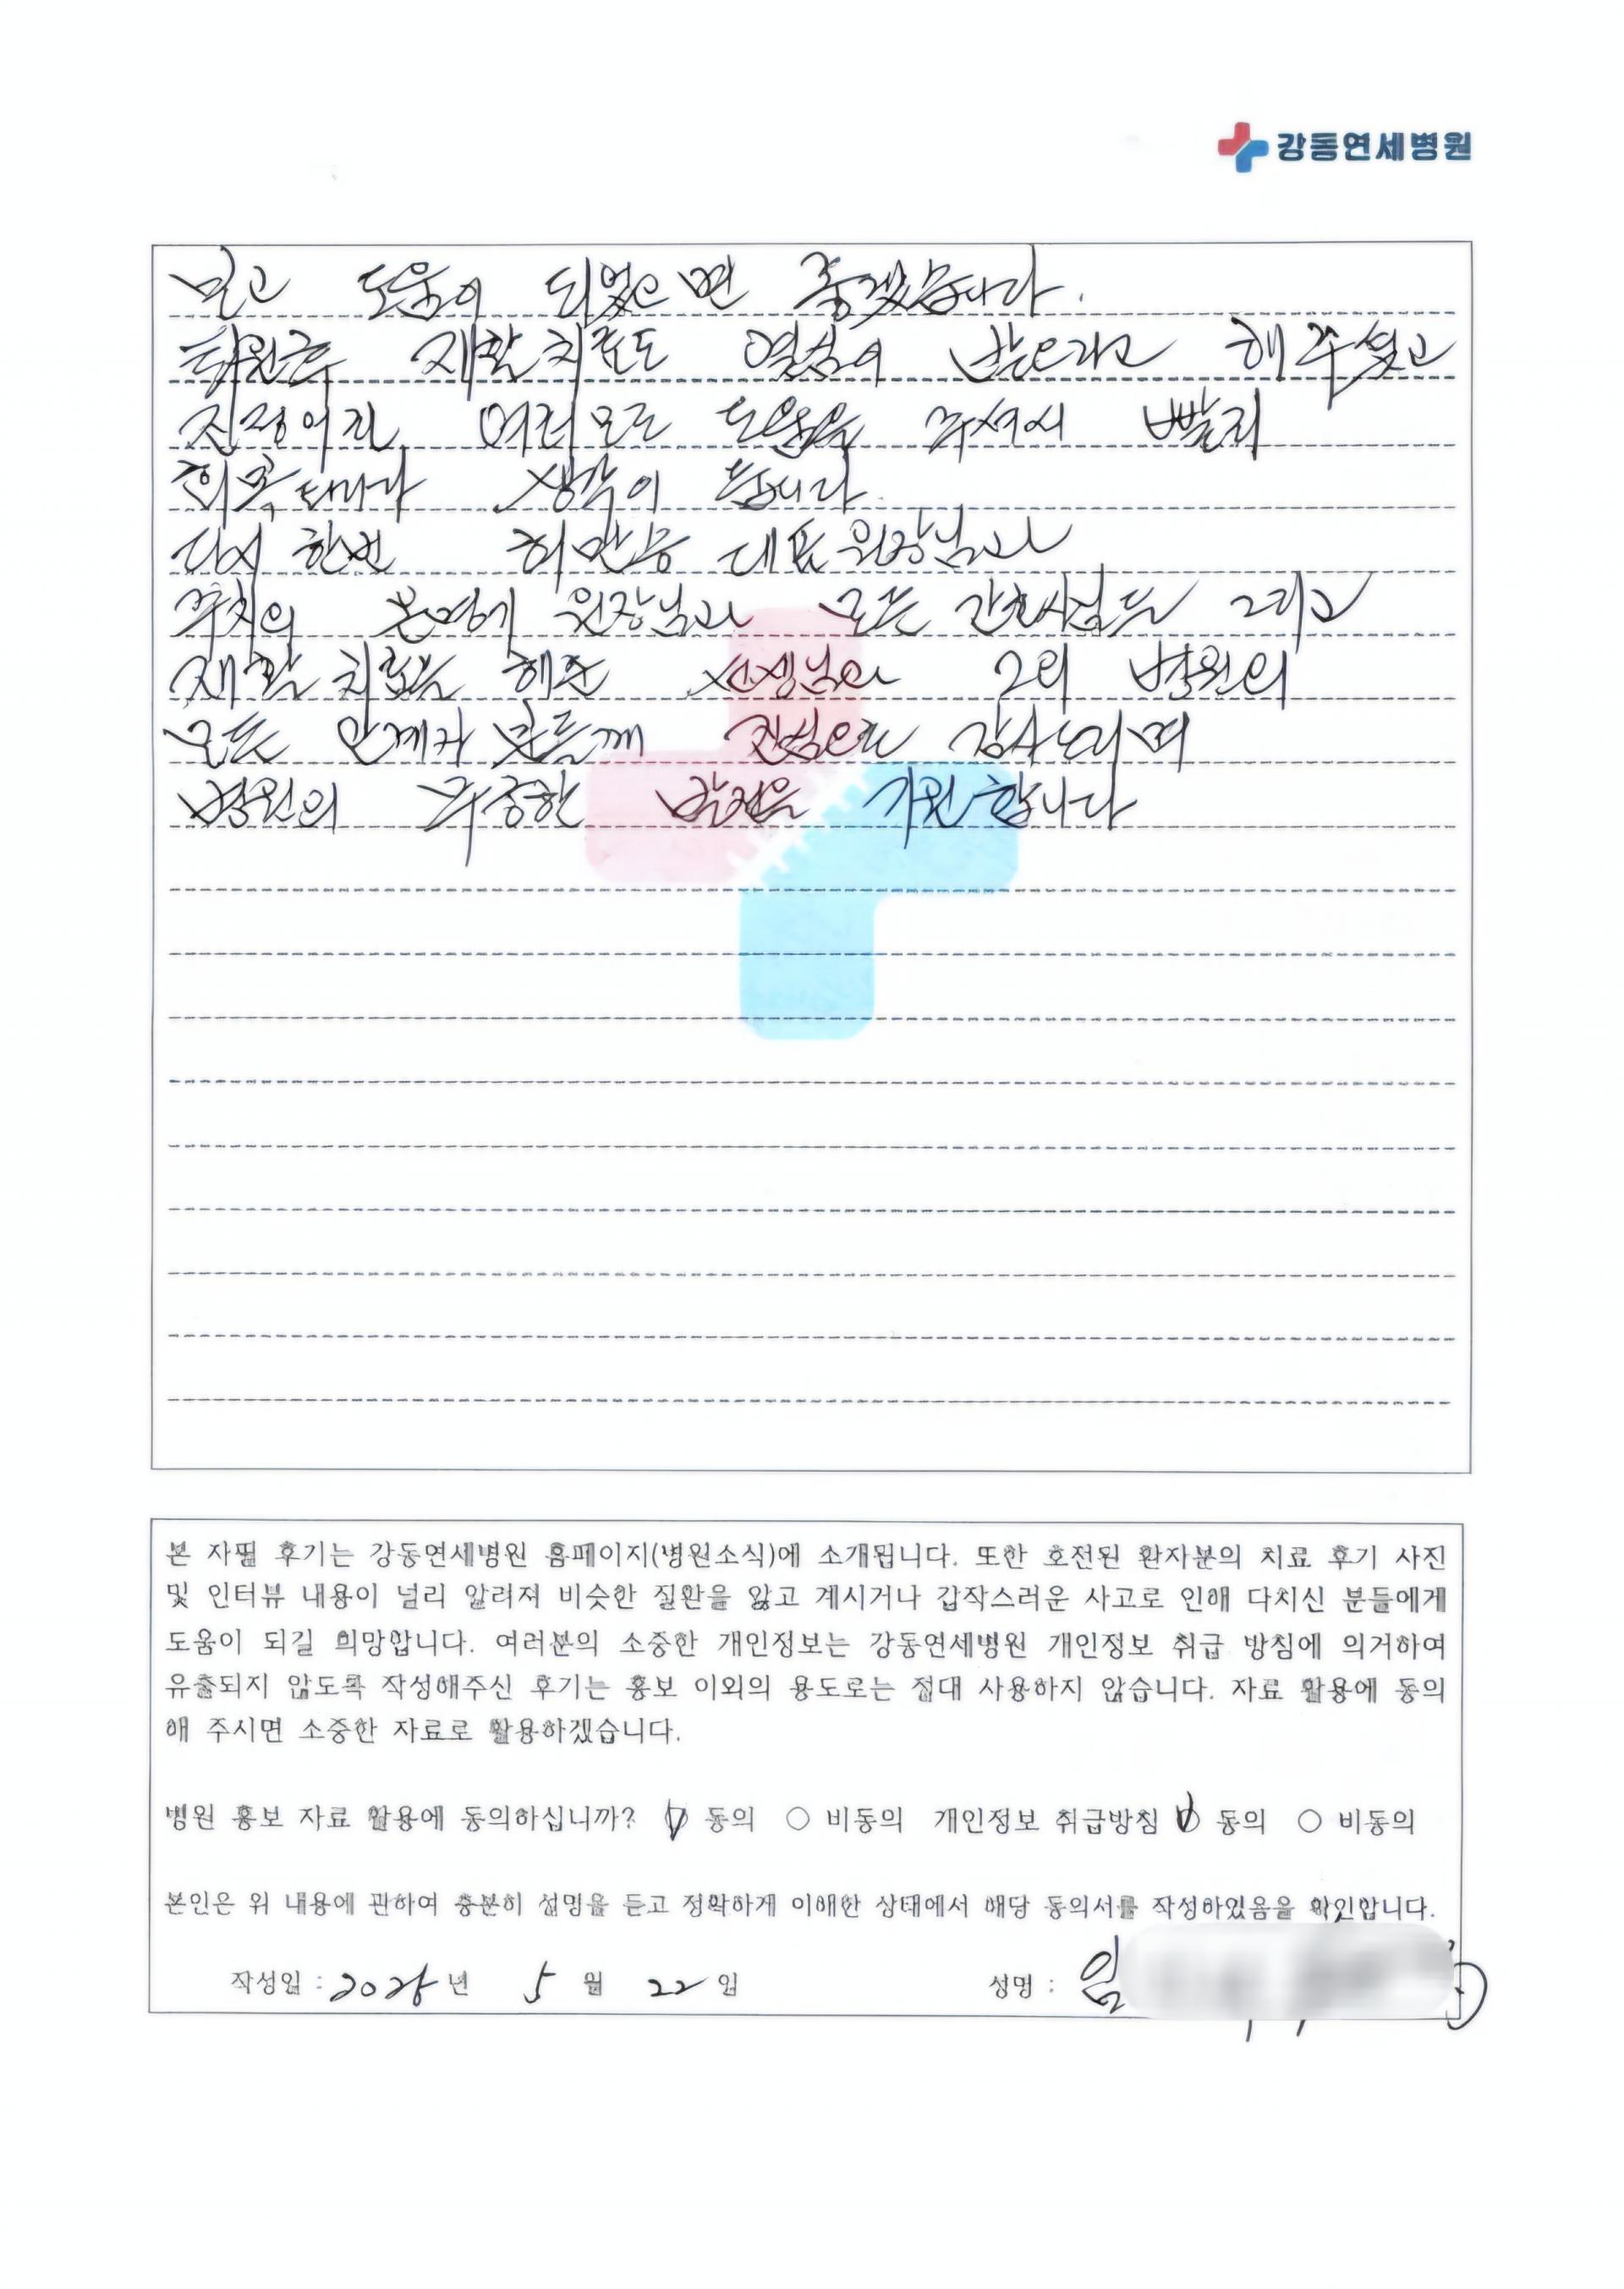 강동연세병원
보고 도움이 되었으면 좋겠습니다.
퇴원후 재활치료도 열심히 받으라고 해주셨고
여러모로 도움을 주셔서 빨리
회복 생각이 듭니다.
다시 한번 허만승 대표원장님과
주치의 원장님과 모든 간호사님들 그리고
재활치료를 해준 선생님과 그외 병원의
모든 관계자 분들께 진심으로 감사드리며
병원의 무궁한 발전을 기원합니다
본 자필 후기는 강동연세병원 홈페이지(병원소식)에 소개됩니다. 또한 호전된 환자분의 치료 후기 사진
및 인터뷰 내용이 널리 알려져 비슷한 질환을 앓고 계시거나 갑작스러운 사고로 인해 다치신 분들에게
도움이 되길 희망합니다. 여러분의 소중한 개인정보는 강동연세병원 개인정보 취급 방침에 의거하여
유출되지 않도록 작성해주신 후기는 홍보 이외의 용도로는 절대 사용하지 않습니다. 자료 활용에 동의
해 주시면 소중한 자료로 활용하겠습니다.
병원 홍보 자료 활용에 동의하십니까? 동의 ○ 비동의 개인정보 취급방침 동의 ○ 비동의
본인은 위 내용에 관하여 충분히 설명을 듣고 정확하게 이해한 상태에서 해당 동의서를 작성하였음을 확인합니다.
작성일 : 년 5 월 22 일 성명 : 임